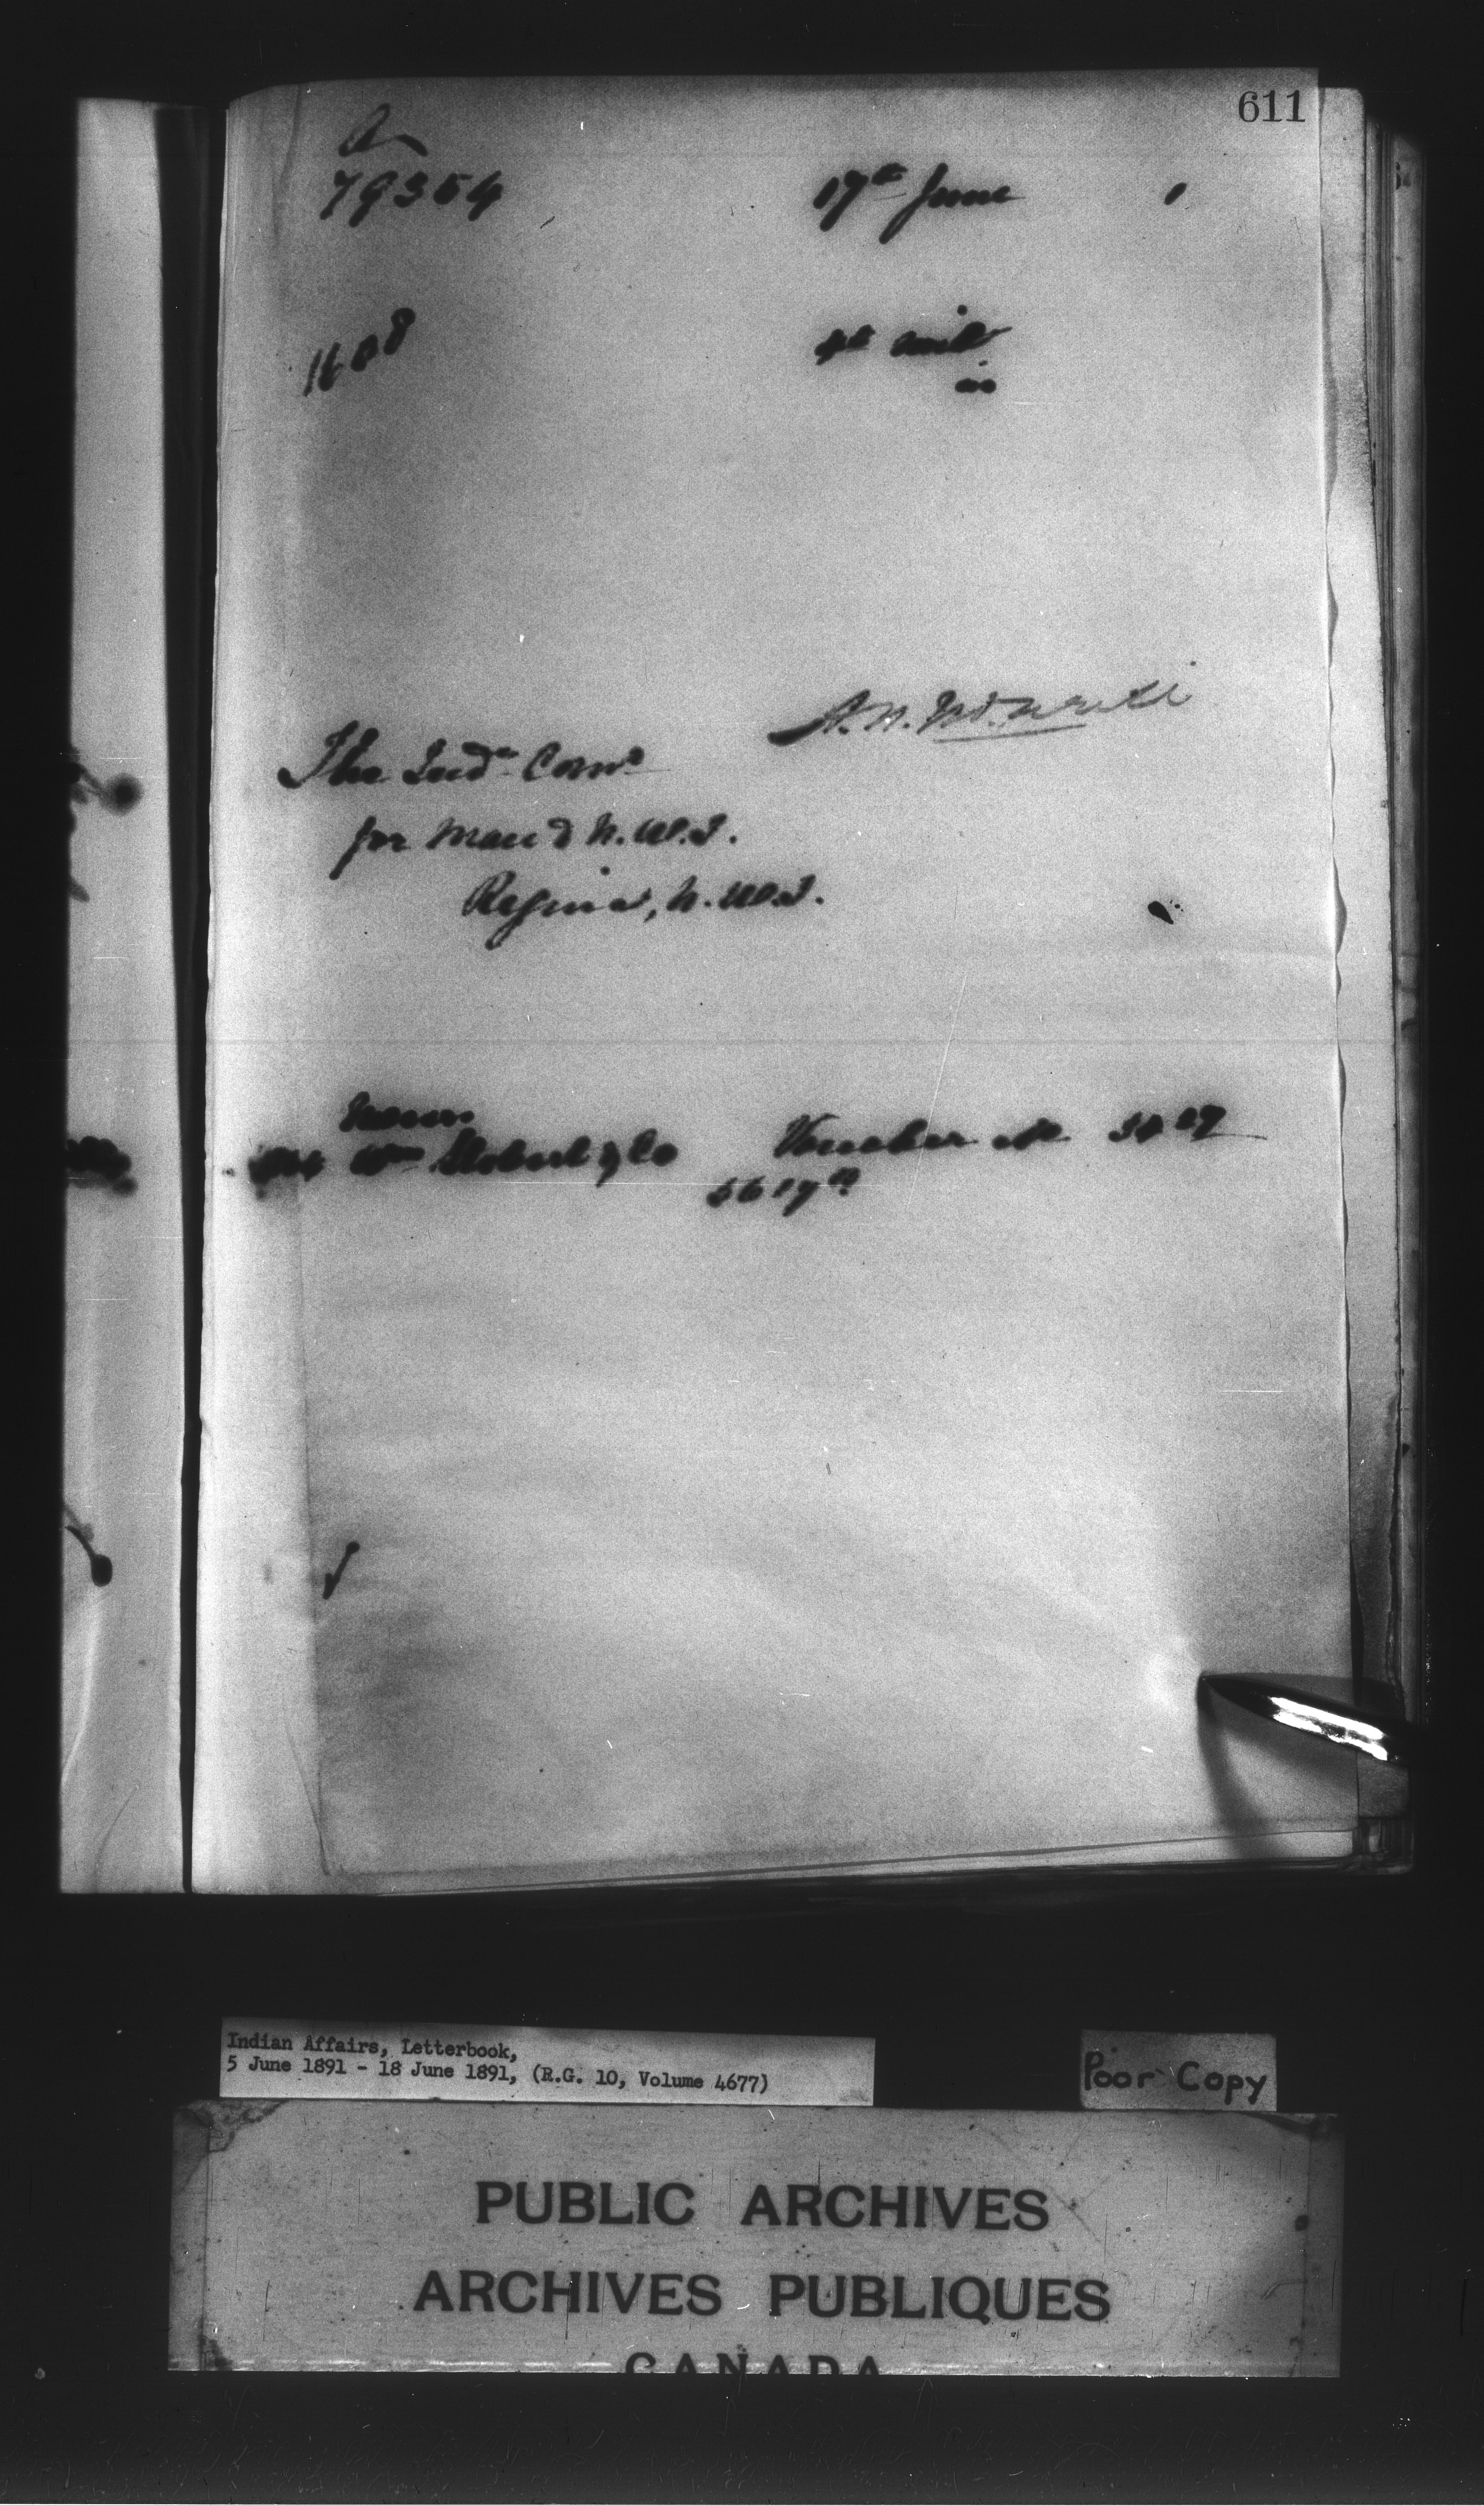 611
79354
17th June 1
1608
4th
The Ind. Comr
for Man & N.W.T.
Regina, N.W.T.
Messrs
Wm & Co Voucher No
Indian Affairs, Letterbook,
5 June 1891 - 18 June 1891, (R.G. 10, Volume 4677)
Poor Copy
PUBLIC ARCHIVES
ARCHIVES PUBLIQUES
CANADA